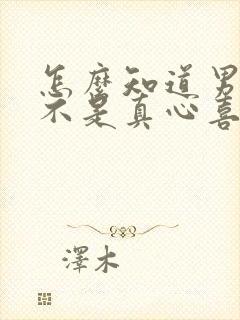 怎麼知道男
不是真心喜
澤木